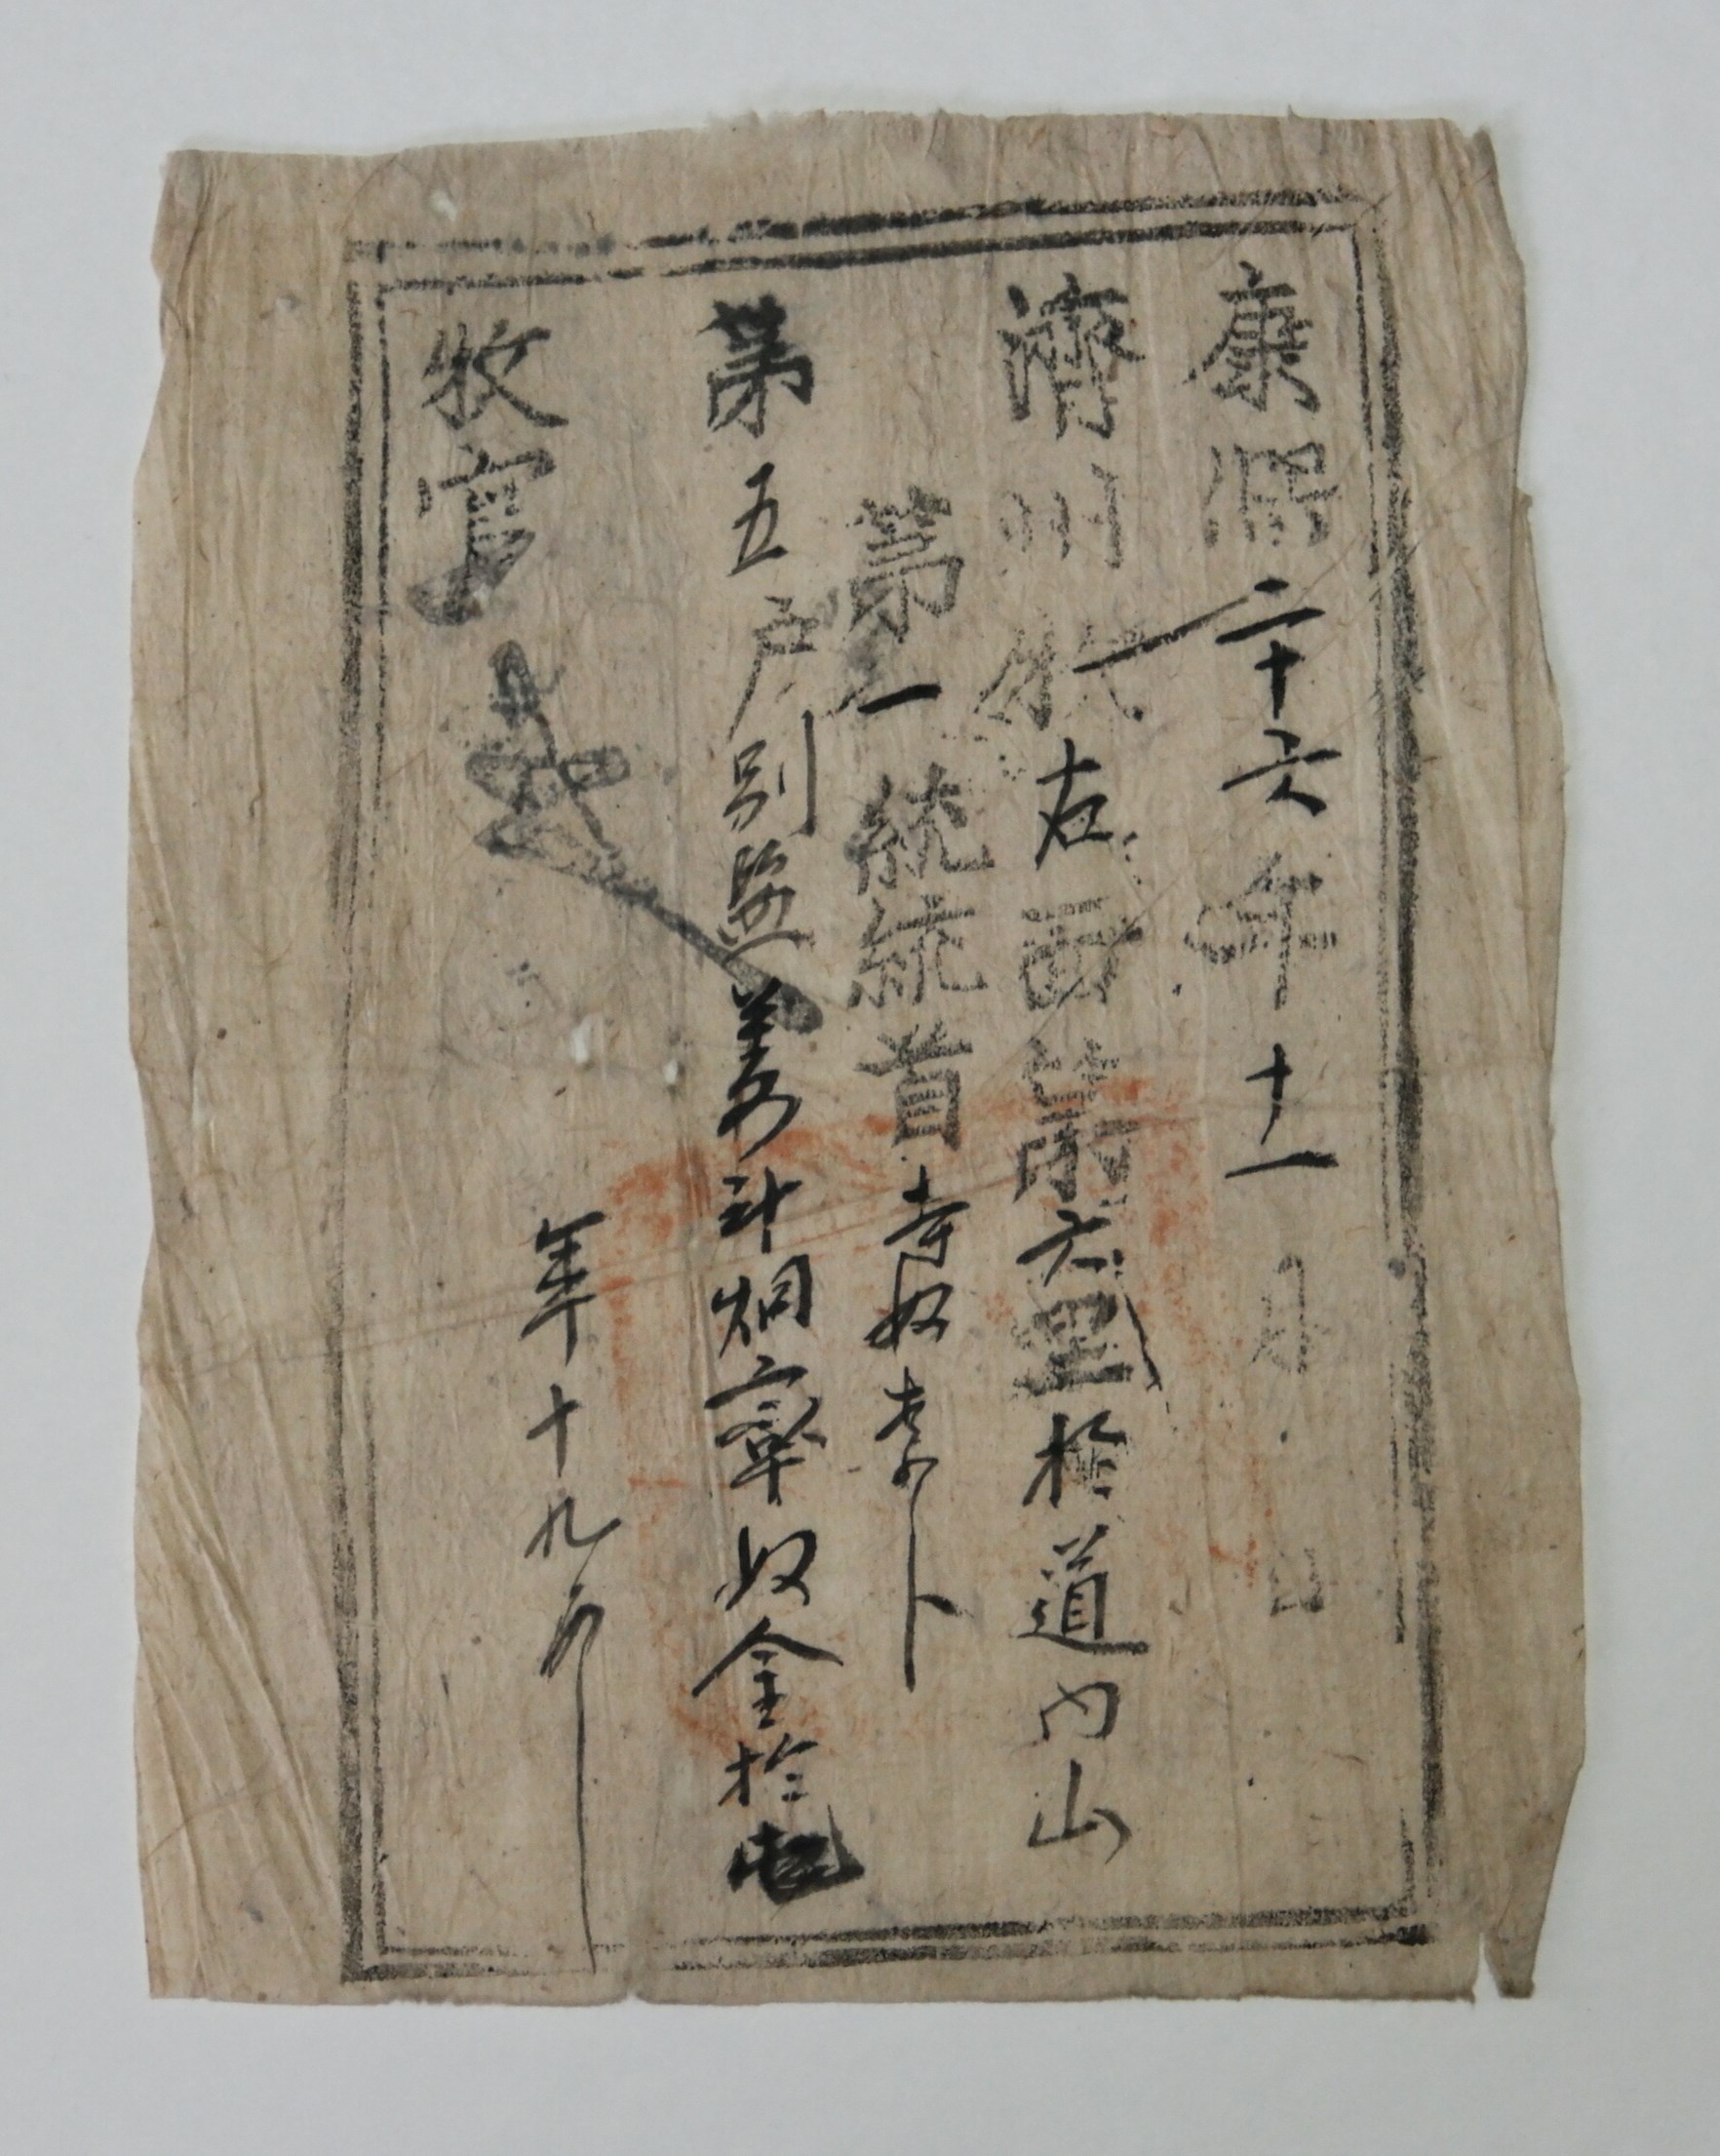 康熙二十六年十一月 日
濟州牧右面第六里於道內山
第一統統首寺奴李卜
第五戶別監姜計炯率奴金於屯
年十九印
牧官